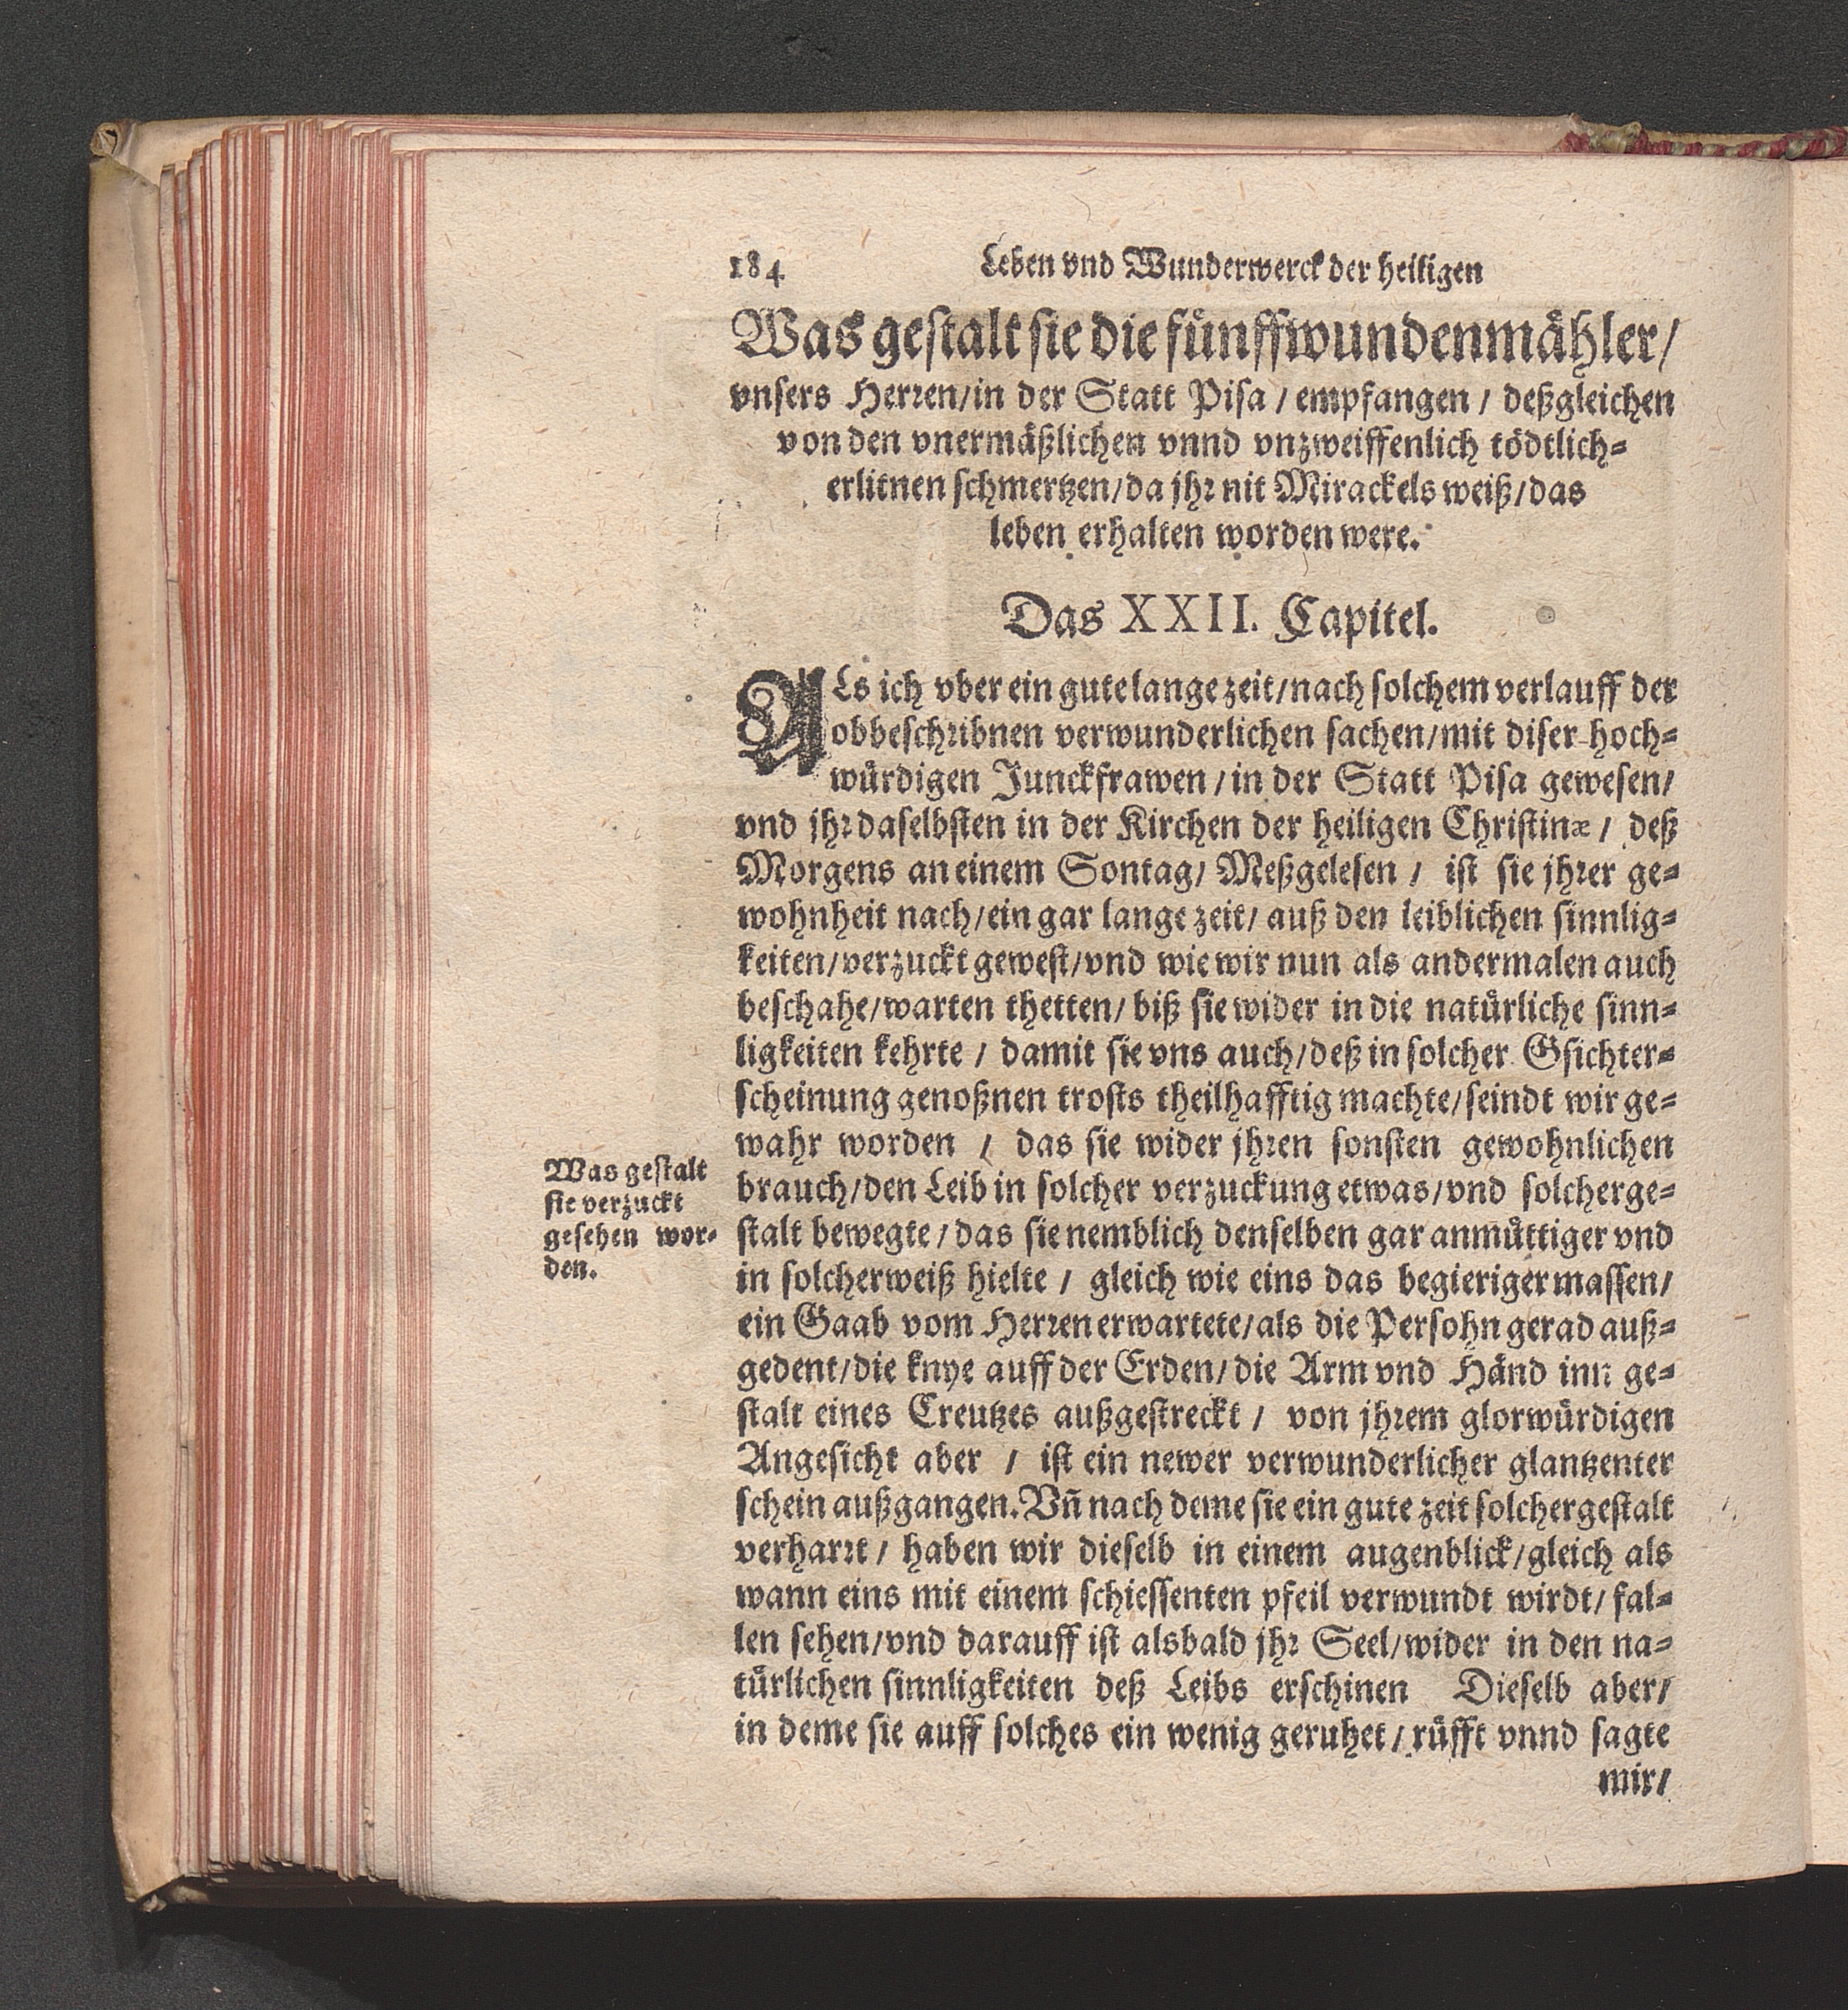 184 Leben vnd Wunderwerck der heiligen
Was gestalt sie die fünffwundenmähler/
vnsers Herren/in der Statt Pisa / empfangen / deßgleichen
von den vnermäßlichen vnnd vnzweiffenlich tödtlich-
erlitnen schmertzen/da jhr nit Mirackels weiß/das
leben erhalten worden were.
Das XXII. Capitel.
ALs ich vber ein gute lange zeit/nach solchem verlauff der
obbeschribnen verwunderlichen sachen/mit diser hoch-
würdigen Junckfrawen / in der Statt Pisa gewesen/
vnd jhr daselbsten in der Kirchen der heiligen Christinæ / deß
Morgens an einem Sontag/ Meßgelesen / ist sie jhrer ge-
wohnheit nach/ein gar lange zeit/ auß den leiblichen sinnlig-
keiten/verzuckt gewest/vnd wie wir nun als andermalen auch
beschahe/warten thetten/ biß sie wider in die natürliche sinn-
ligkeiten kehrte / damit sie vns auch/deß in solcher Gsichter-
scheinung genoßnen trosts theilhafftig machte/seindt wir ge-
wahr worden / das sie wider jhren sonsten gewohnlichen
brauch/den Leib in solcher verzuckung etwas/vnd solcherge-
stalt bewegte / das sie nemblich denselben gar anmüttiger vnd
in solcherweiß hielte / gleich wie eins das begieriger massen/
ein Gaab vom Herren erwartete/als die Persohn gerad auß-
gedent/die knye auff der Erden/die Arm vnd Händ inn ge-
stalt eines Creutzes außgestreckt / von jhrem glorwürdigen
Angesicht aber / ist ein newer verwunderlicher glantzenter
schein außgangen. Vñ nach deme sie ein gute zeit solchergestalt
verharrt / haben wir dieselb in einem augenblick/gleich als
wann eins mit einem schiessenten pfeil verwundt wirdt/ fal-
len sehen/vnd darauff ist alsbald jhr Seel/wider in den na-
türlichen sinnligkeiten deß Leibs erschinen Dieselb aber/
in deme sie auff solches ein wenig geruhet / rüfft vnnd sagte
mir/
Was gestalt
sie verzuckt
gesehen wor-
den.